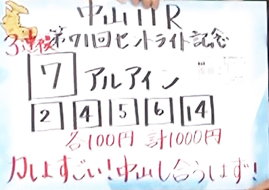 中山11R
3連複 第71回セントライト記念
7 アルアイン
2 4 5 6 14
各100円 計1000円
力はすごい!中山も合うはず!